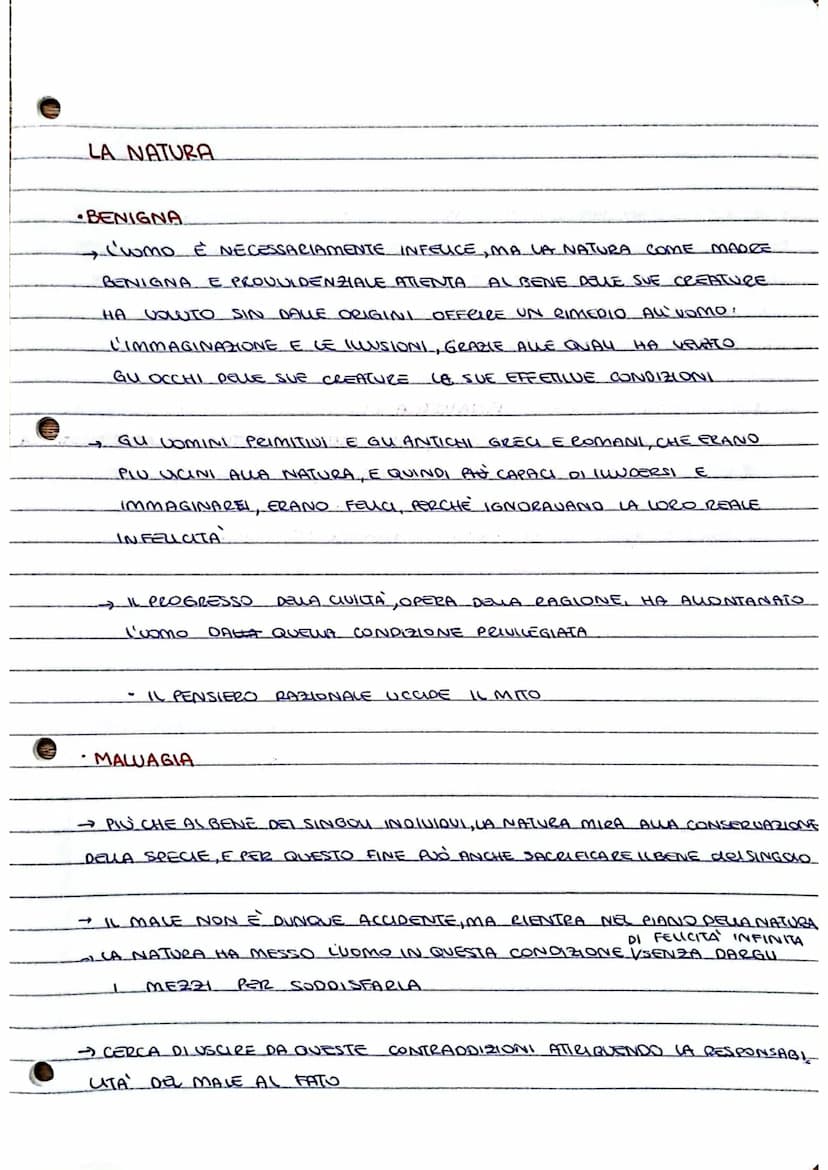 LA NATURA
• BENIGNA
→ L'UOMO È NECESSARIAMENTE INFELICE, MA LA NATURA COME MADRE
BENIGNA E PROVVIDENZIALE ATTENTA AL BENE DELLE SUE CREATURE
HA VOLUTO SIN DALLE ORIGINI OFFRIRE UN RIMEDIO ALL'UOMO:
L'IMMAGINAZIONE E LE ILLUSIONI, GRAZIE ALLE QUALI HA VELATO
GLI OCCHI DELLE SUE CREATURE LE SUE EFFETTIVE CONDIZIONI
→ GLI UOMINI PRIMITIVI E GLI ANTICHI GRECI E ROMANI, CHE ERANO
PIU VICINI ALLA NATURA, E QUINDI PIÙ CAPACI DI ILLUDERSI E
IMMAGINARSI, ERANO FELICI, PERCHÈ IGNORAVANO LA LORO REALE
INFELICITÀ
→ IL PROGRESSO DELLA CIVILTÀ, OPERA DELLA RAGIONE, HA ALLONTANATO
L'UOMO DA QUELLA CONDIZIONE PRIVILEGIATA
- IL PENSIERO RAZIONALE UCCIDE IL MITO
• MALVAGIA
→ PIÙ CHE AL BENE DEI SINGOLI INDIVIDUI, LA NATURA MIRA ALLA CONSERVAZIONE
DELLA SPECIE, E PER QUESTO FINE PUÒ ANCHE SACRIFICARE IL BENE del SINGOLO
→ IL MALE NON È DUNQUE ACCIDENTE, MA RIENTRA NEL PIANO DELLA NATURA
DI FELICITÀ INFINITA
→ LA NATURA HA MESSO L'UOMO IN QUESTA CONDIZIONE V SENZA DARGLI
I MEZZI PER SODDISFARLA
→ CERCA DI USCIRE DA QUESTE CONTRADDIZIONI ATTRIBUENDO LA RESPONSABI
LITÀ DEL MALE AL FATO